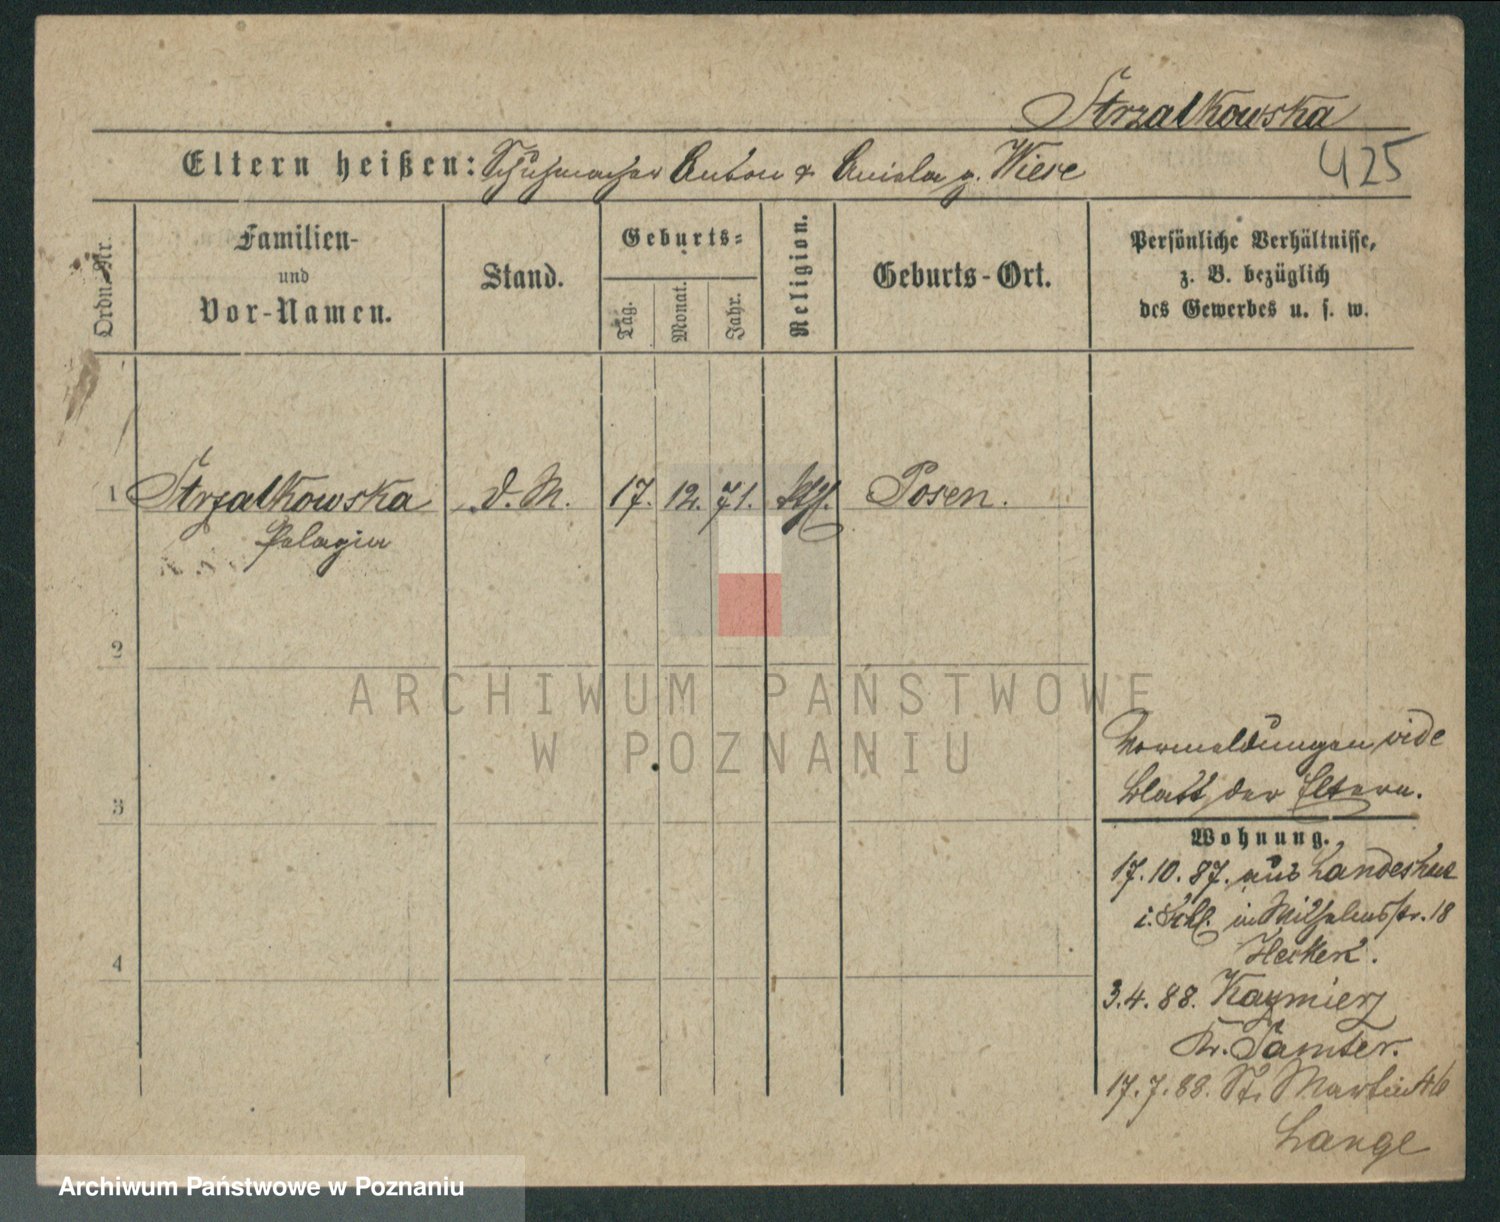 Strzalkowska
Eltern heißen: Schuhmacher Anton & Aniela g. Wiese
425
Ordn. Nr.
Familien-
und
Vor-Namen.
Stand.
Geburts-
Tag.
Monat.
Jahr.
Religion.
Geburts-Ort.
Persönliche Verhältnisse,
z. B. bezüglich
des Gewerbes u. s. w.
1 Strzalkowska d. M. 17. 12. 71. kth. Posen.
Pelagia
2
3
4
Vormeldungen vide
Blatt der Eltern.
Wohnung.
17.10.87. aus Landeshut
i. Schl. in Wilhelmsstr. 18
3.4.88. Kazmierz
Kr. Samter.
17.7.88. St. Martin 46
Lange
ARCHIWUM PAŃSTWOWE
W POZNANIU
Archiwum Państwowe w Poznaniu